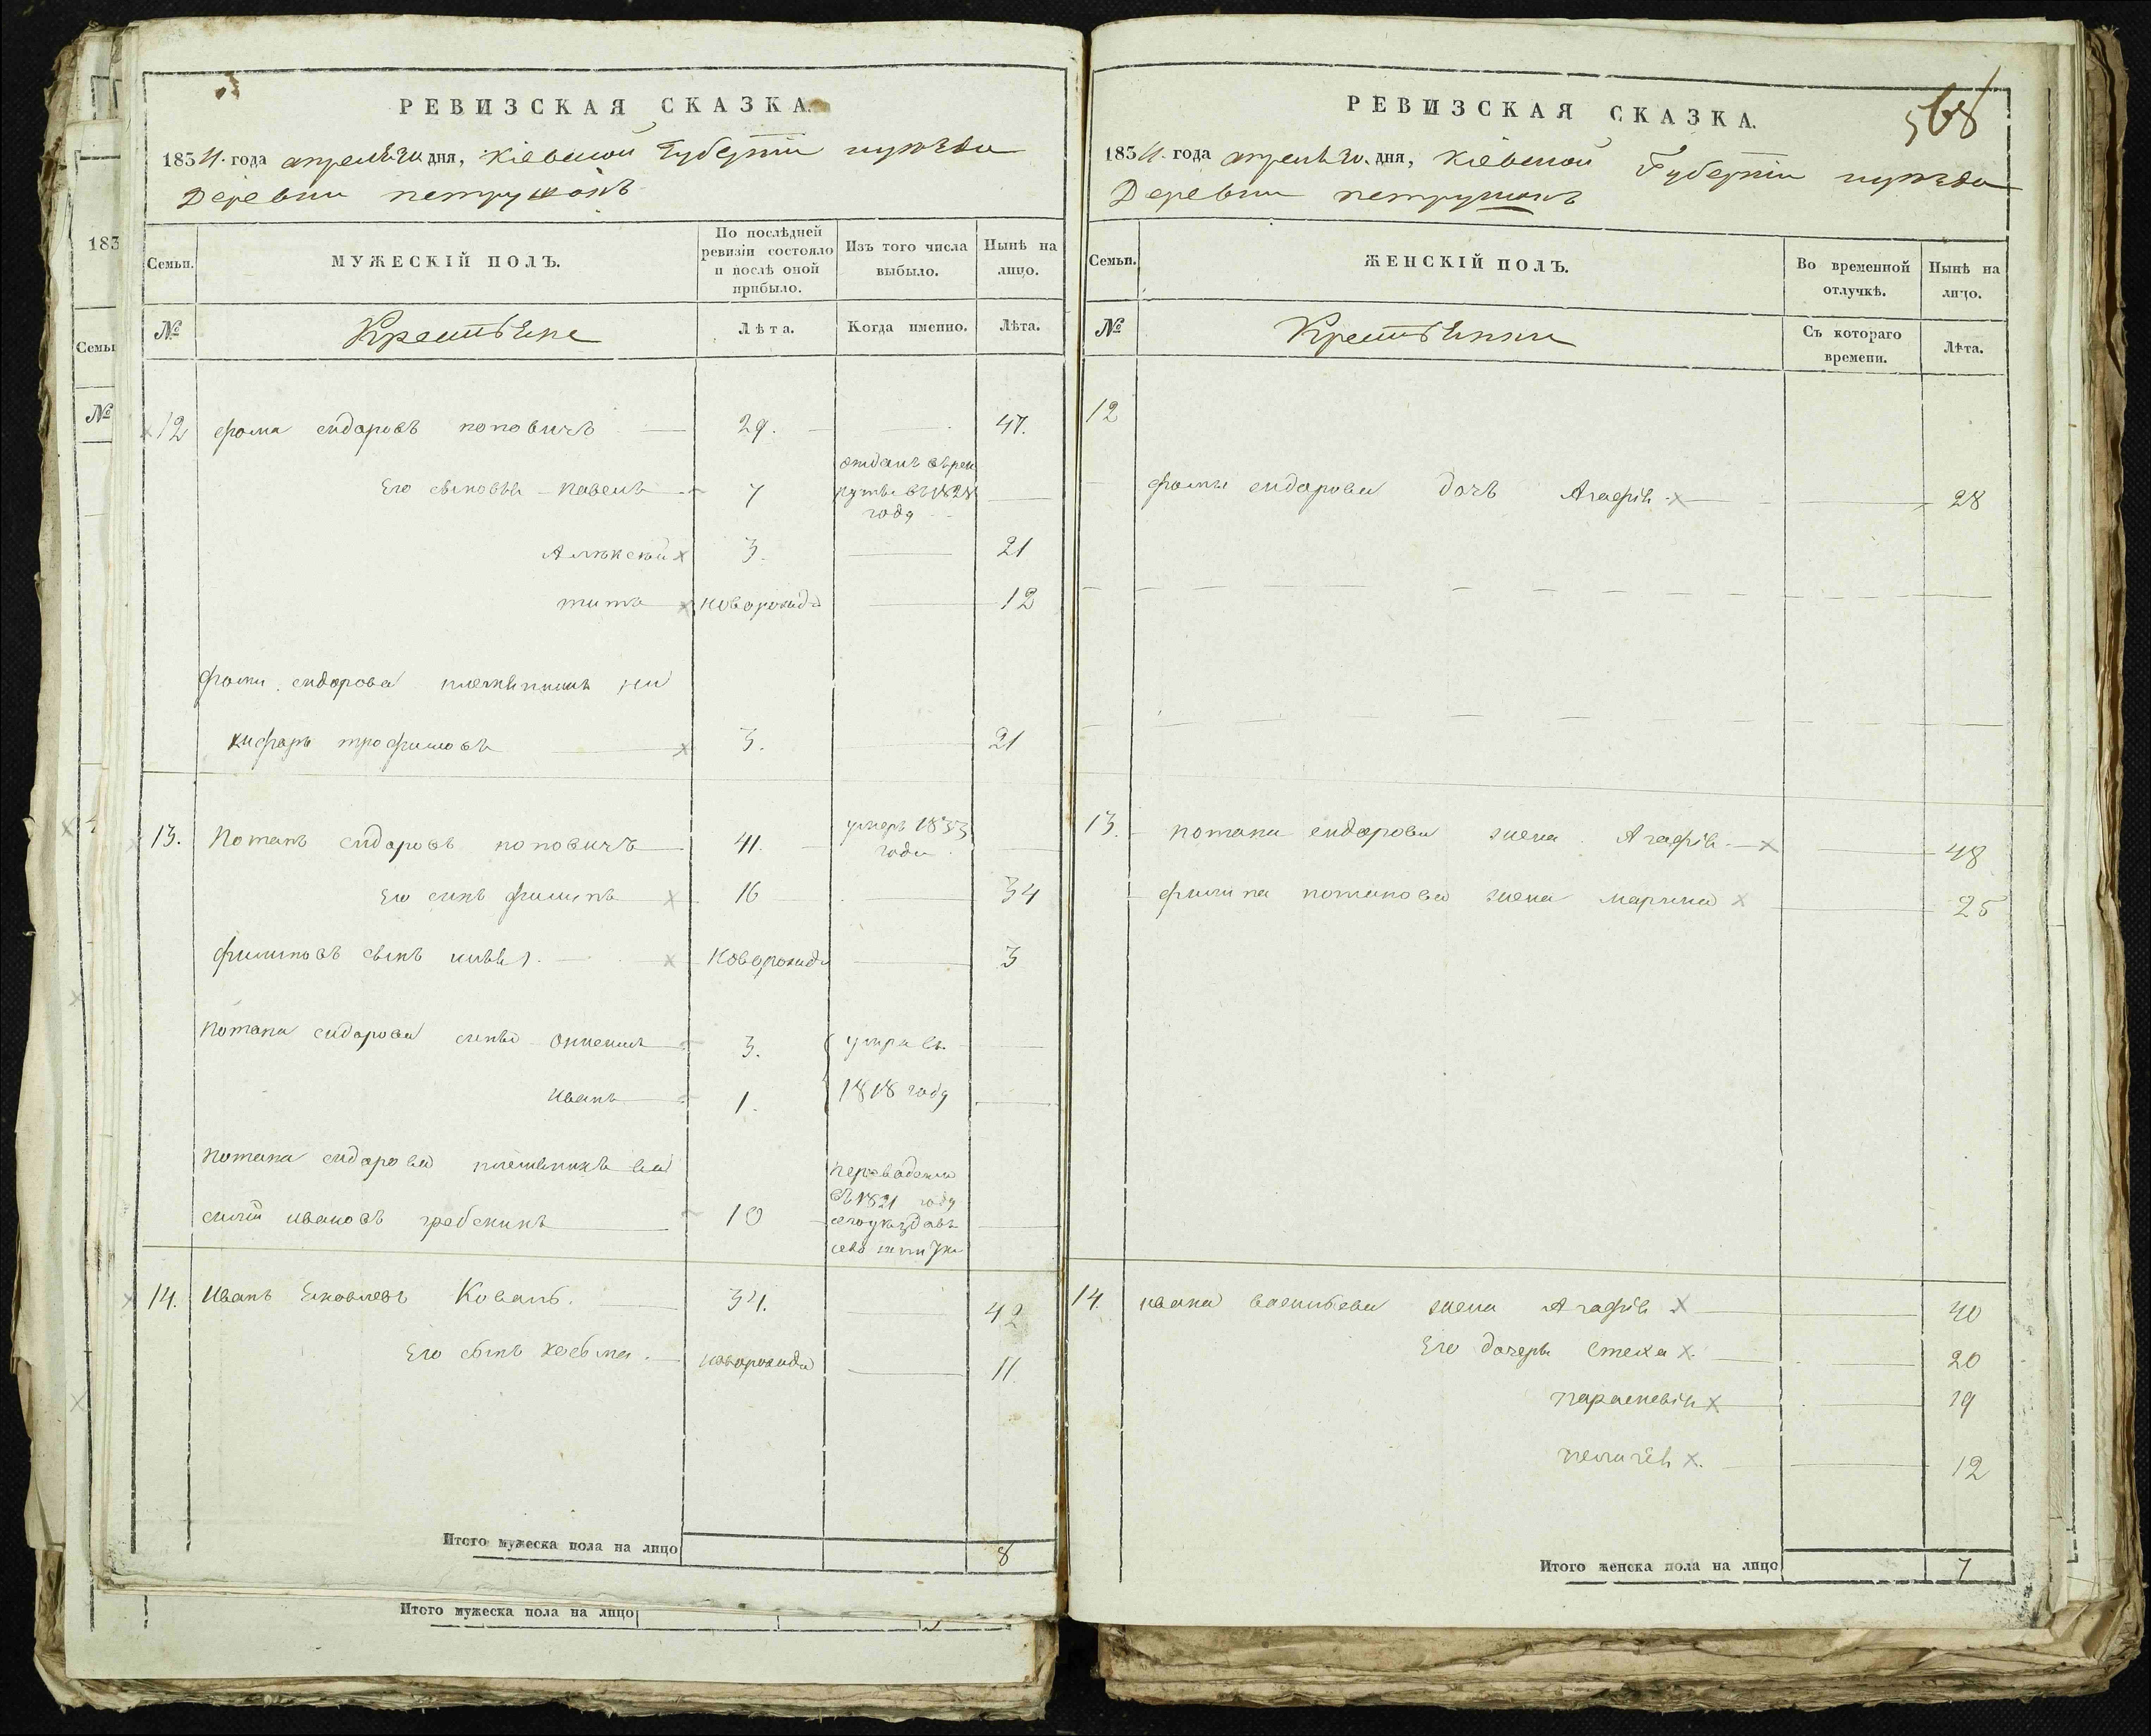 РЕВИЗСКАЯ СКАЗКА.
1834. года апреля 20 дня, Кіевской Губерніи и уезда
Деревни петрушокъ
Семьи.
МУЖЕСКІЙ ПОЛЪ.
По послѣдней ревизіи состояло и послѣ оной прибыло.
Изъ того числа выбыло.
Нынѣ на лицо.
№
Крестьяне
Лѣта.
Когда именно.
Лѣта.
12 фома сидоровъ поповичъ 29. 47.
Его сыновья павелъ 7 отданъ въ рекруты въ 1828 году
Алексей 3. 21
титъ новорожд 12
фомы сидорова племянникъ ни
кифоръ трофимовъ 3. 21
13. Потапъ сидоровъ поповичъ 41. умеръ 1833 года
Его синъ филипъ 16 34
филиповъ сынъ новорожд 3
потапа сидорова сины 3. умри въ
иванъ 1. 1818 году
потапа сидорова племянникъ ва
силий ивановъ гребеникъ 10 переведенъ въ 1821 году
14. Иванъ Яковлевъ Коваль. 34. 42
Его сынъ косьма. новорожд 11.
Итого мужеска пола на лицо 8
Итого мужеска пола на лицо
568
РЕВИЗСКАЯ СКАЗКА.
1834. года апреля 20. дня, Кіевской Губерніи и уезда
Деревни петрушокъ
Семьи.
ЖЕНСКІЙ ПОЛЪ.
Во временной отлучкѣ.
Нынѣ на лицо.
№
Крестьянки
Съ котораго времени.
Лѣта.
12
фомы сидорова дочь Агафія 28
13. потапа сидорова жена Агафія 48
филипа потапова жена марина 25
14. ивана жена Агафія 40
Его дочери Стеха 20
параскевія 19
12
Итого женска пола на лицо 7
183
Семьи
№